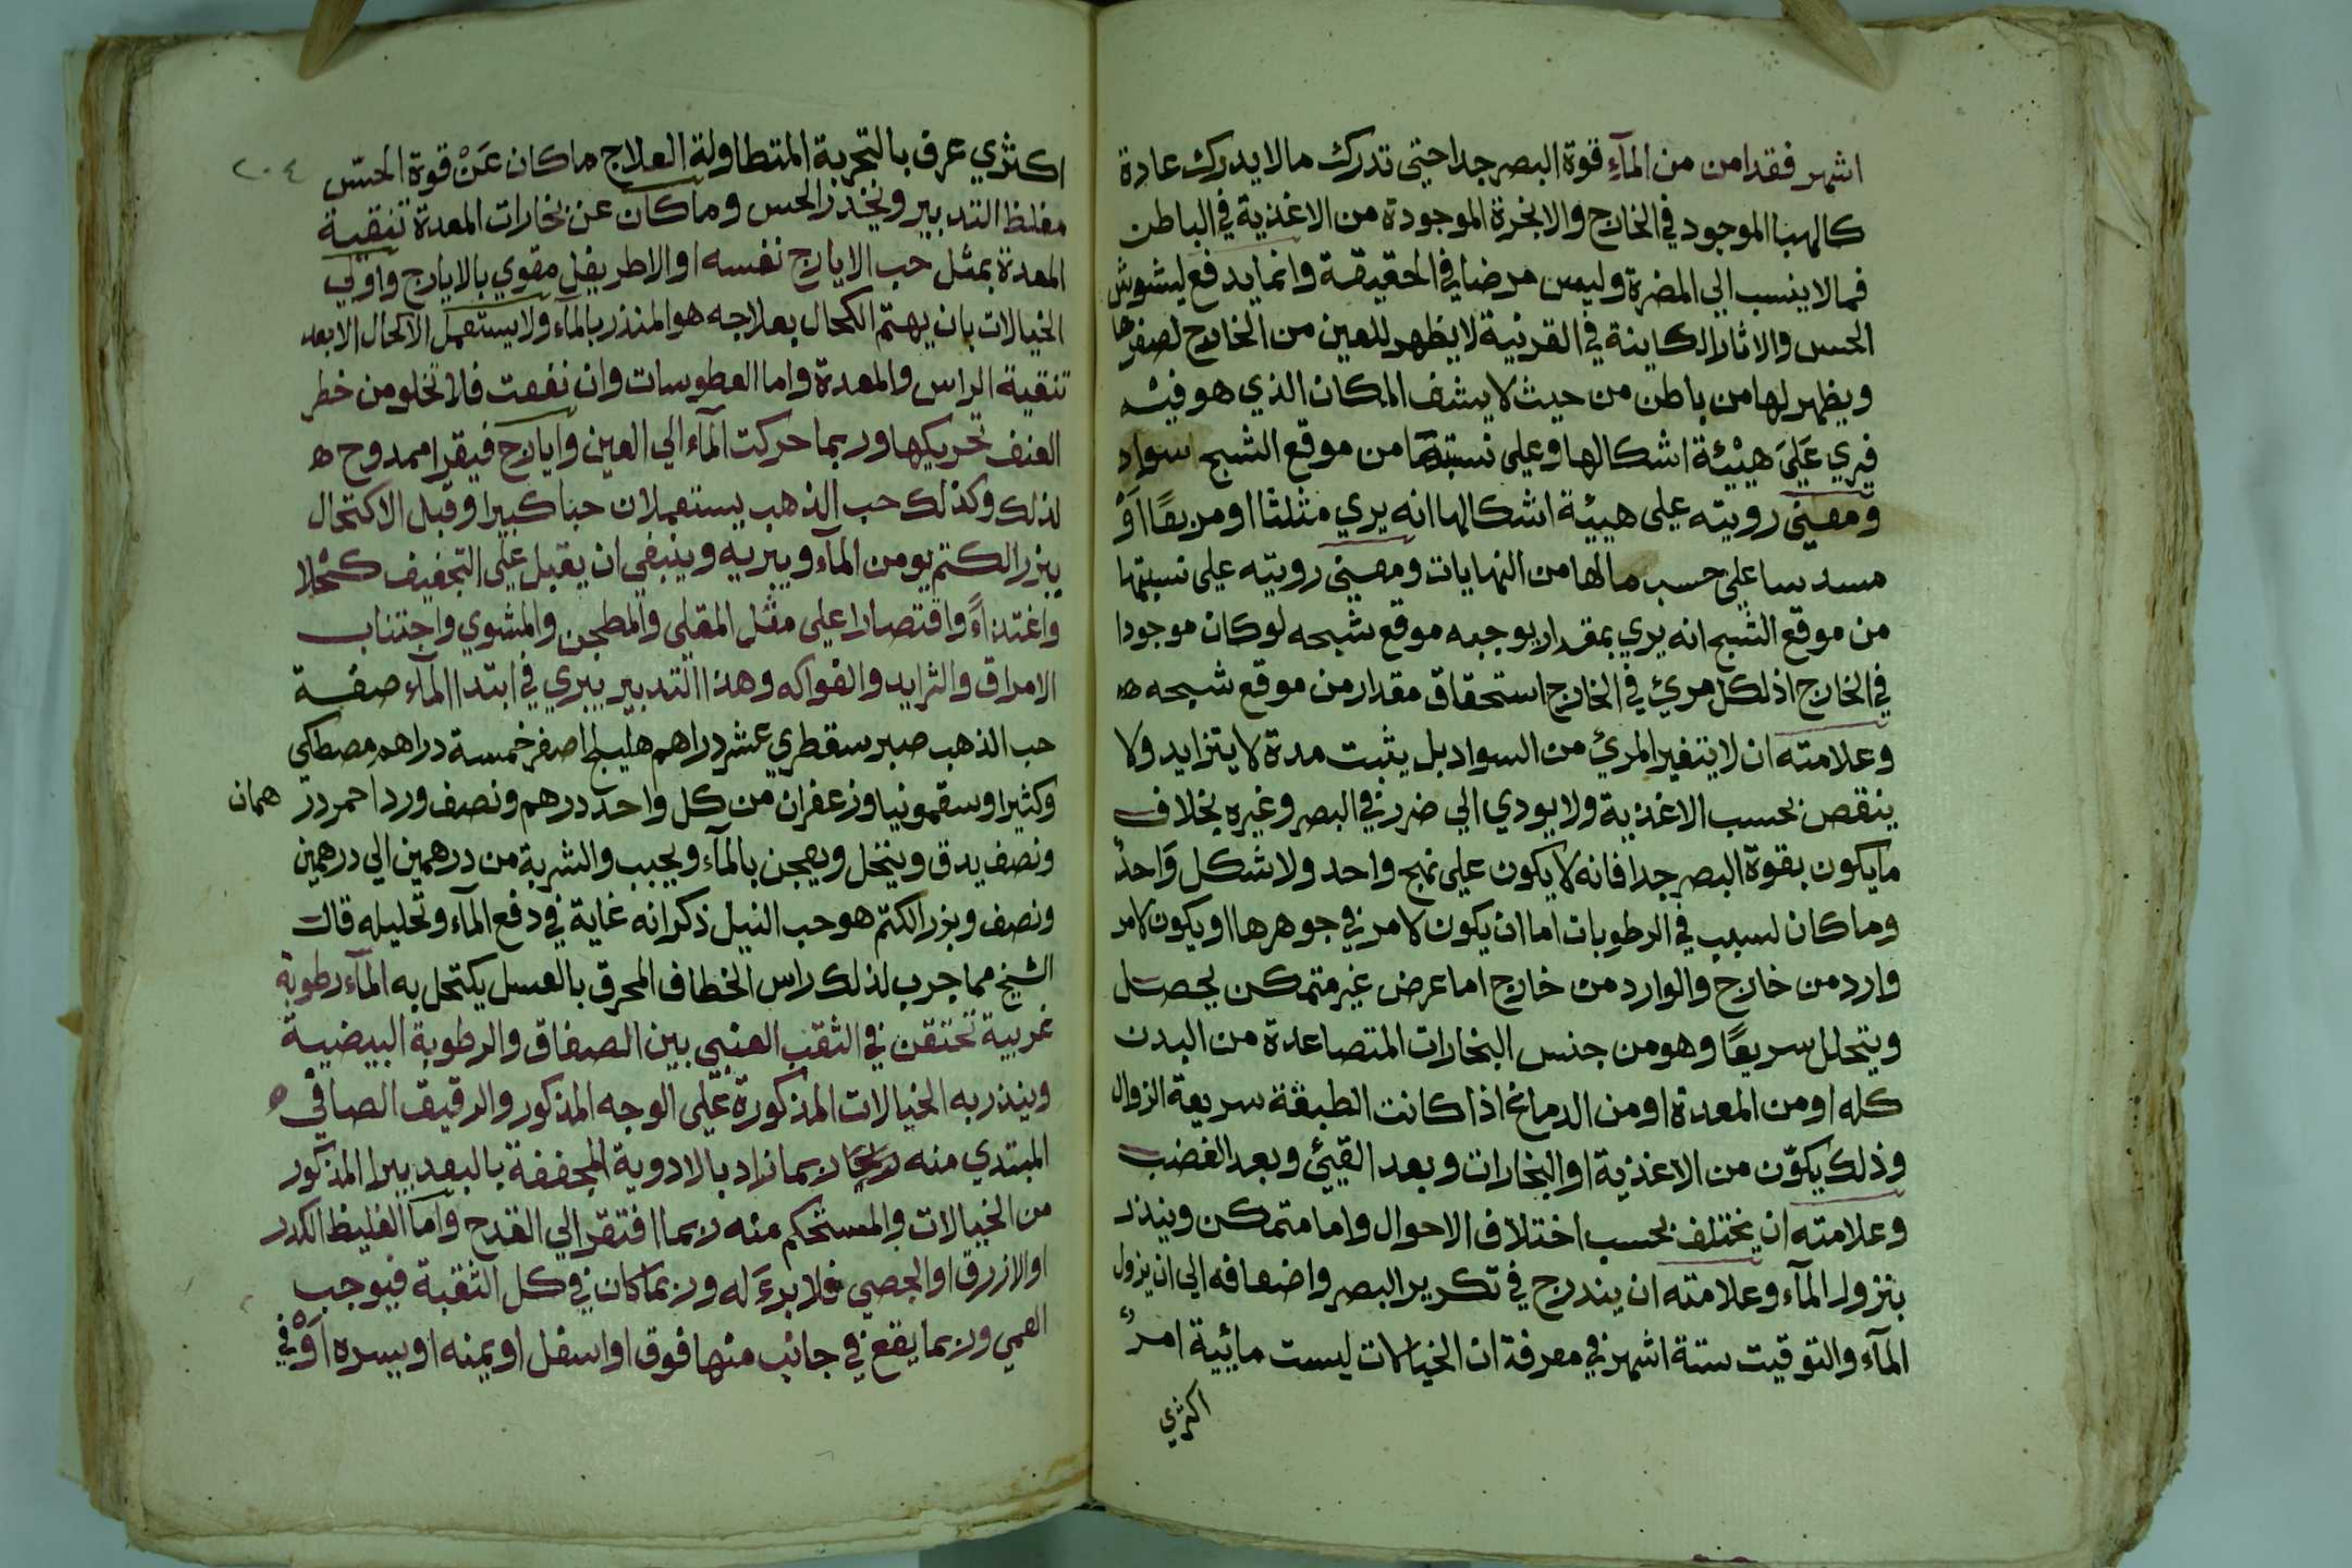 اشهر فقد امن من المآء قوة البصر جدا حتى تدرك مالا يدرك عادة
كالهبا الموجود في الخارج والابخرة الموجودة من الاغذية في الباطن
فما لا ينسب الي المضرة وليس مرضا في الحقيقة وانما يدفع ليشوش
الحس والاثار الكاينة في القرنية لا يظهر للعين من الخارج لصغرها
ويظهر لها من باطن من حيث لا يشف المكان الذي هو فيه
فيري علي هيئة اشكالها وعلى نسبتها من موقع الشبح سواد
ومعني رويته على هيئة اشكالها انه يري مثلثا او مربعًا اوْ
مسدسا علي حسب مالها من النهايات ومعني رويته على نسبتها
من موقع الشبح انه يري بمقدار يوجبه موقع شبحه لو كان موجودا
في الخارج اذ لكل مريئ في الخارج استحقاق مقدار من موقع شبحه ه
وعلامته ان لا يتغير المريئ من السواد بل يثبت مدة لا يتزايد ولا
ينقص بحسب الاغذية ولا يودي الي ضرر في البصر وغيره بخلاف
ما يكون بقوة البصر جدا فانه لا يكون على نهج واحد ولا شكل واحدٌ
وما كان لسبب في الرطوبات اما ان يكون لامر في جوهرها او يكون لامر
وارد من خارج والوارد من خارج اما عرض غير متمكن يحصل
ويتحلل سريعًا وهو من جنس البخارات المتصاعدة من البدن
كله او من المعدة او من الدماغ اذا كانت لطيفة سريعة الزوال
وذلك يكون من الاغذية او البخارات وبعد القيئ وبعد الغضب
وعلامته ان يختلف بحسب اختلاف الاحوال واما متمكن وينذر
بنزول المآء وعلامته ان يندرج في تكرير البصر واضعافه الي ان يزول
المآء والتوقيت ستة اشهر في معرفة ان الخيالات ليست مائية امرٌ
اكثري
٢٠٤
اكثري عرف بالتجربة المتطاولة العلاج ما كان عَنْ قوة الحسّ
مغلظ التدبير ونخدر الحس وما كان عن بخارات المعدة تنقية
المعدة بمثل حب الايارج نفسه او الاطريفل مقوي بالايارج واولي
الخيالات بان يهتم الكحال بعلاجه هو المنذر بالمآء ولا يستعمل الاكحال الا بعد
تنقية الراس والمعدة واما العطوسات وان نفعت فلا تخلو من خطر
العنف تحريكها وربما حركت المآء الي العين وايارج فيقرا ممدوح ه
لذلك وكذلك حب الذهب يستعملان حبا كبيرا وقبل الاكتحال
ببزر الكتم يومن المآء ويبريه وينبغي ان يقبل علي التجفيف كحلا
واغتذاءً واقتصارا على مثل المقلي والمطجن والمشوي واجتناب
الامراق والثرايد والفواكه وهذا التدبير يبري في ابتدا المآء صفة
حب الذهب صبر سقطري عشر دراهم هليلج اصفر خمسة دراهم مصطكي
وكثيرا وسقمونيا وزعفران من كل واحد درهم ونصف ورد احمر درهمان
ونصف يدق وينخل ويعجن بالمآء ويحبب والشربة من درهمين الي درهمين
ونصف وبزر الكتم هو حب النيل ذكر انه غاية في دفع المآء وتحليله قال
الشيخ مما جرب لذلك راس الخطاف المحرق بالعسل يكتحل به المآء رطوبة
غريبة تحتقن في الثقب العنبي بين الصفاق والرطوبة البيضية
وينذر به الخيالات المذكورة على الوجه المذكور والرقيق الصافي ه
المبتدي منه ربما زاد بالادوية المجففة بالبعد ببرا المذكور
من الخيالات والمستحكم منه ربما افتقر الي القدح واما الغليظ الكدر
او الازرق او الجصي فلا برءَ له وربما كان في كل الثقبة فيوجب
العمي وربما يقع في جانب منها فوق او اسفل او يمنه او يسره اوْ في